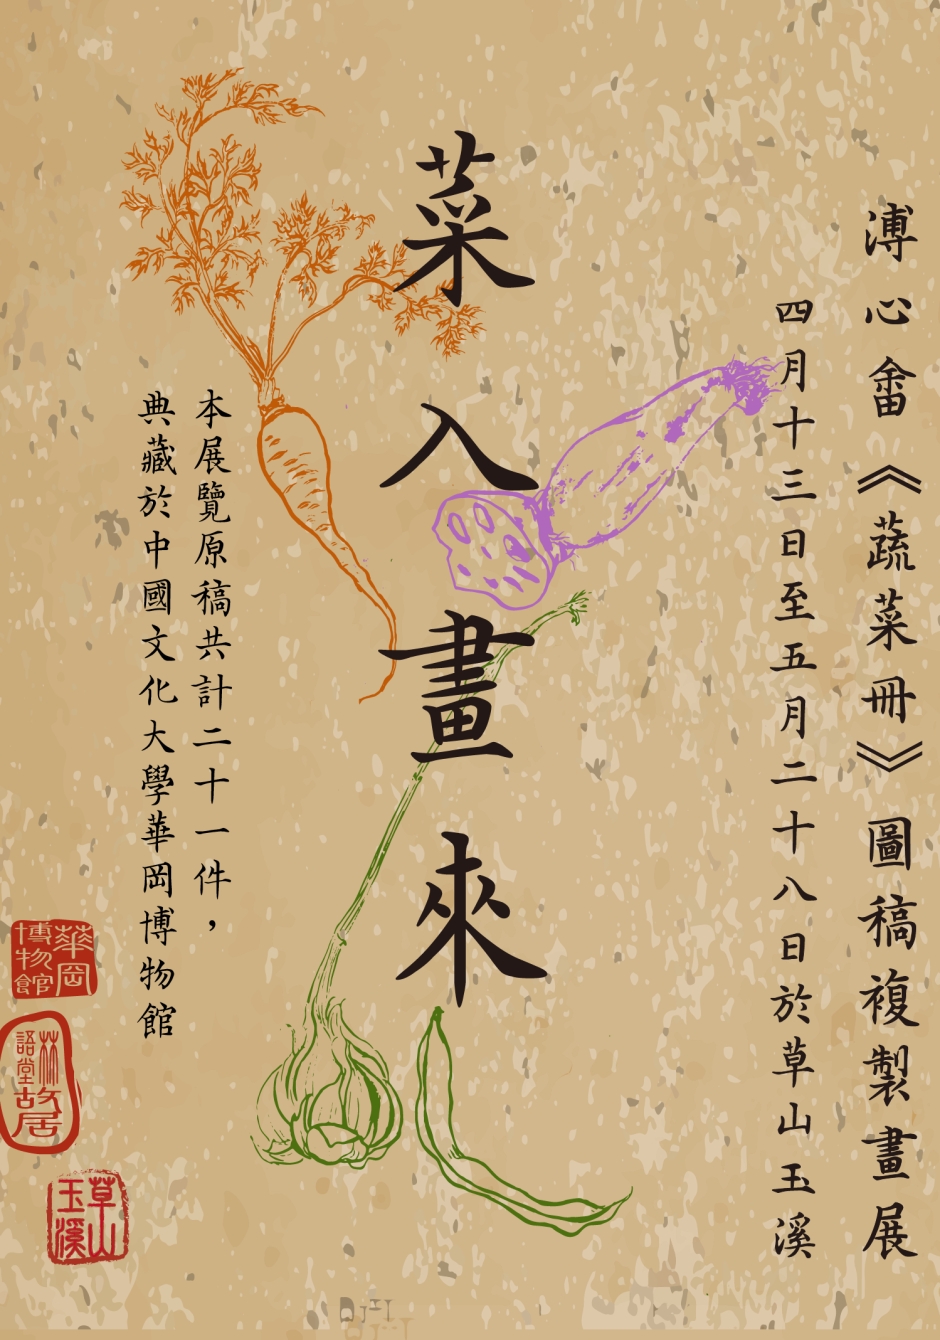 溥心畬《蔬菜冊》圖稿複製畫展
四月十三日至五月二十八日於草山玉溪
菜入畫來
本展覽原稿共計二十一件，
典藏於中國文化大學華岡博物館
華岡
博物館
林語堂
故居
草山
玉溪